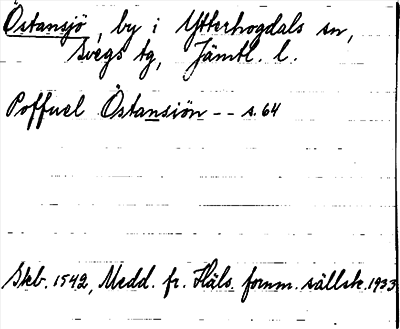 Östansjö, by i Ytterhogdals sn,
Svegs tg, Jämtl. l.
Poffuel Östansiön -- s. 64
Skb. 1542, Medd. fr. Häls. fornm. sällsk. 1933